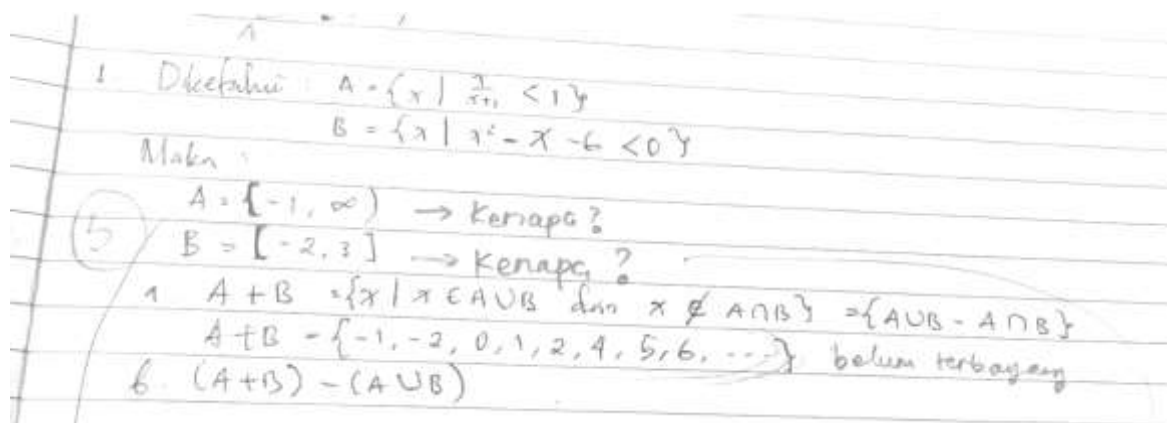 1 Diketahui : A = {x | 1/x+1 < 1}
B = {x | x² - x - 6 < 0}
Maka :
A = [-1, ∞) → Kenapa?
5
B = [-2, 3] → Kenapa?
a A + B = {x | x ∈ A∪B dan x ∉ A∩B} = {A∪B - A∩B}
A + B = {-1, -2, 0, 1, 2, 4, 5, 6, ...} belum terbayang
b. (A+B) - (A∪B)